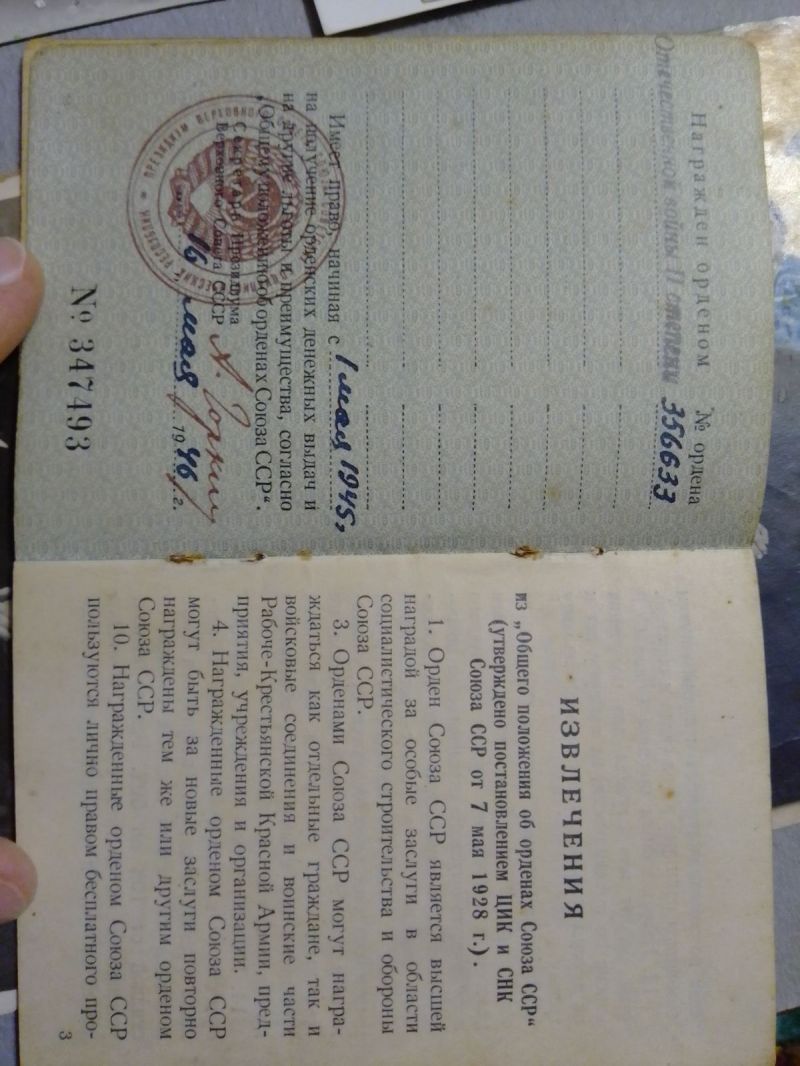 Награжден орденом № ордена
Отечественной войны II степени 356633
Имеет право, начиная с 1 мая 1945,
на получение орденских денежных выдач и
на другие льготы и преимущества, согласно
„Общему положению об орденах Союза ССР“.
Секретарь Президиума
Верховного Совета СССР А. Горкин
16 мая 1946 г.
№ 347493
ИЗВЛЕЧЕНИЯ
из „Общего положения об орденах Союза ССР“
(утверждено постановлением ЦИК и СНК
Союза ССР от 7 мая 1928 г.).
1. Орден Союза ССР является высшей
наградой за особые заслуги в области
социалистического строительства и обороны
Союза ССР.
3. Орденами Союза ССР могут награ-
ждаться как отдельные граждане, так и
войсковые соединения и воинские части
Рабоче-Крестьянской Красной Армии, пред-
приятия, учреждения и организации.
4. Награжденные орденом Союза ССР
могут быть за новые заслуги повторно
награждены тем же или другим орденом
Союза ССР.
10. Награжденные орденом Союза ССР
пользуются лично правом бесплатного про-
3